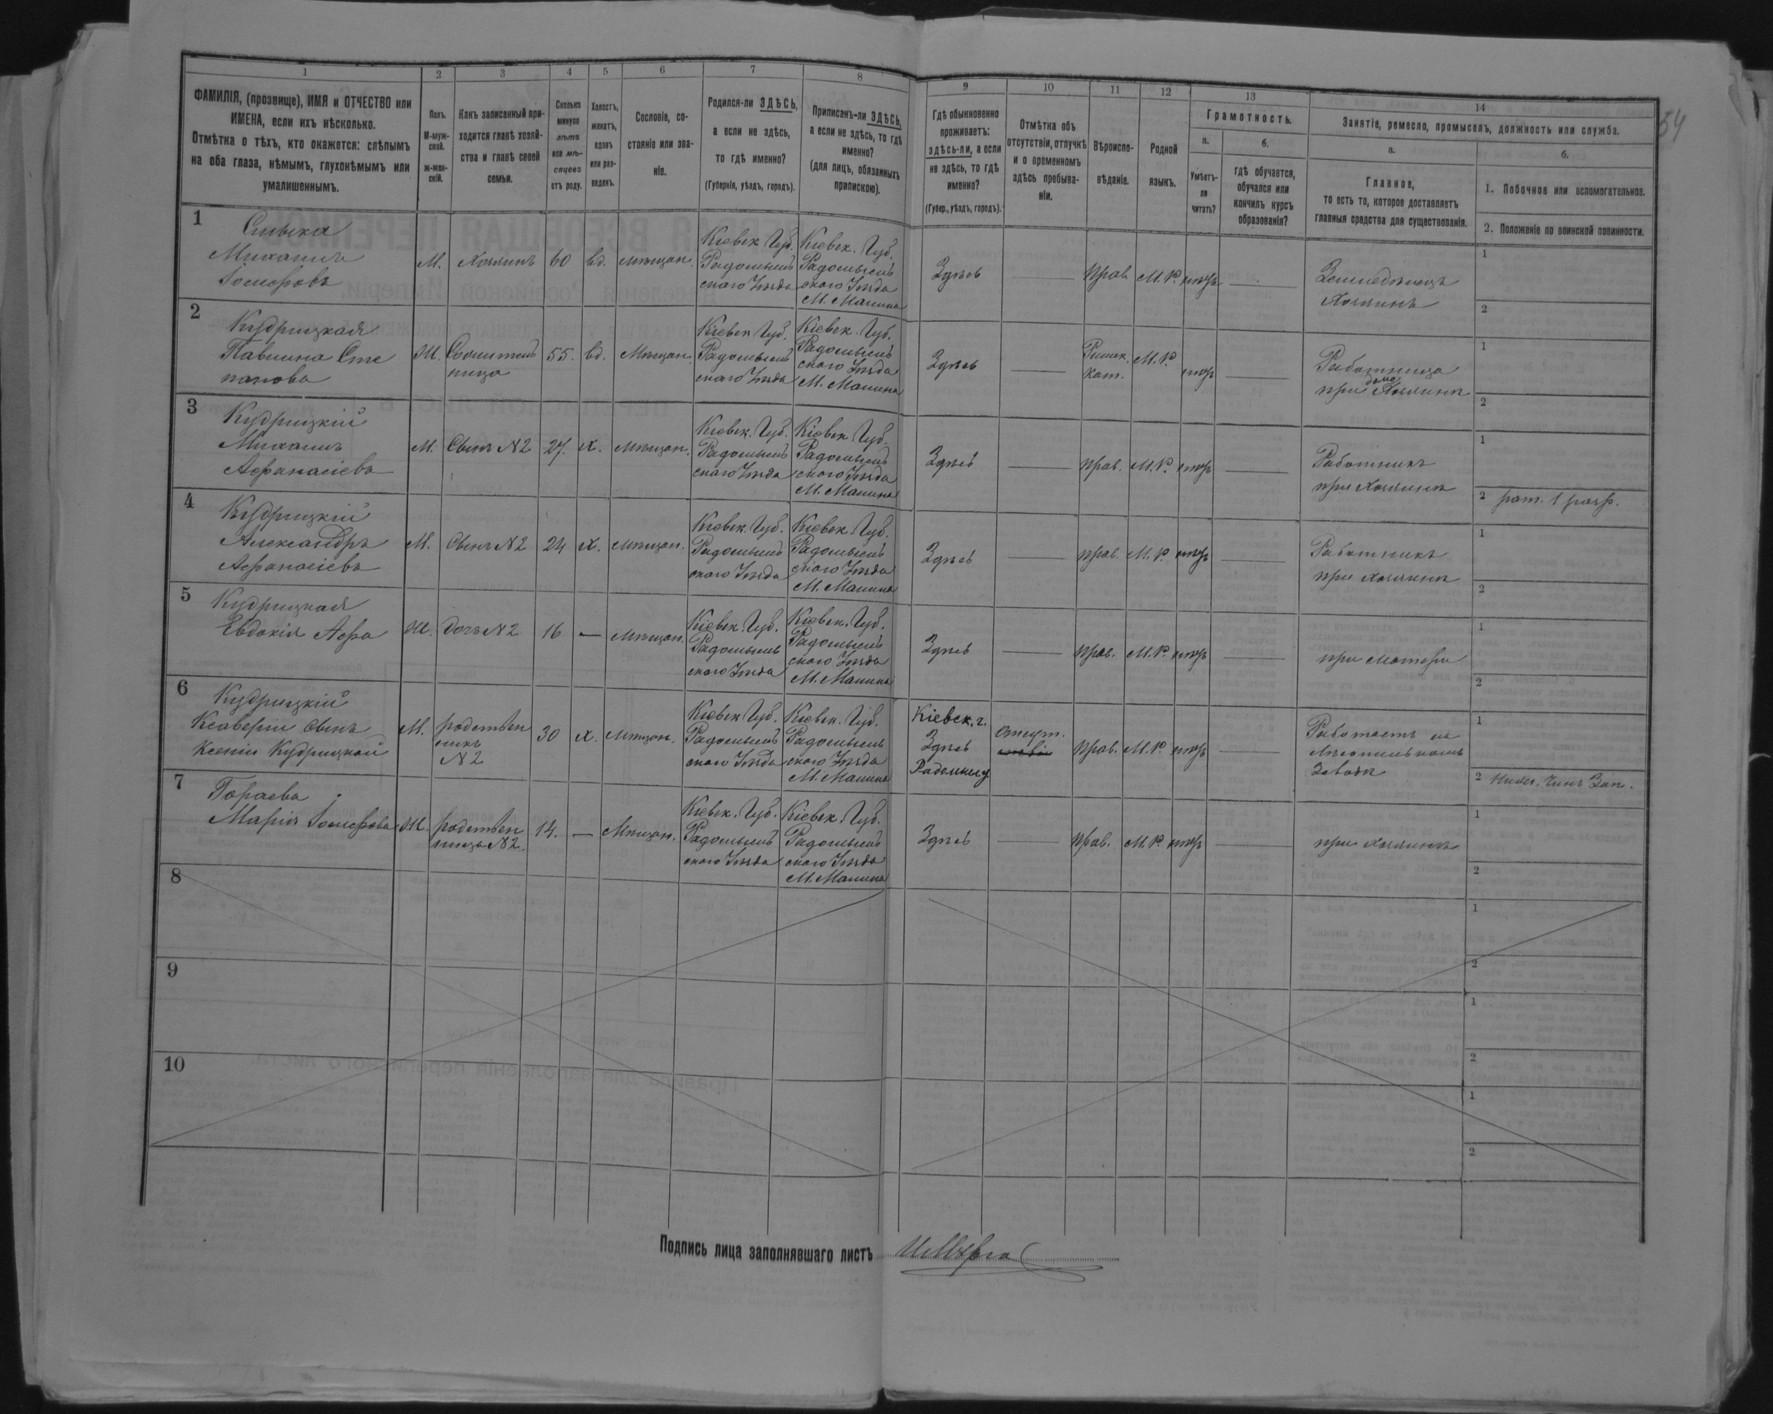 1 2 3 4 5 6 7 8 9 10 11 12 13 14
54
ФАМИЛІЯ, (прозвище), ИМЯ и ОТЧЕСТВО или
ИМЕНА, если ихъ нѣсколько.
Отмѣтка о тѣхъ, кто окажется: слѣпымъ
на оба глаза, нѣмымъ, глухонѣмымъ или
умалишеннымъ.
Полъ.
М-муж-
ской.
ж-жен-
скій.
Какъ записанный при-
ходится главѣ хозяй-
ства и главѣ своей
семьи.
Сколько
минуло
лѣтъ
или мѣ-
сяцевъ
отъ роду.
Холостъ,
женатъ,
вдовъ
или раз-
веденъ.
Сословіе, со-
стояніе или зва-
ніе.
Родился-ли ЗДѢСЬ,
а если не здѣсь,
то гдѣ именно?
(Губернія, уѣздъ, городъ).
Приписанъ-ли ЗДѢСЬ,
а если не здѣсь, то гдѣ
именно?
(для лицъ, обязанныхъ
припискою).
Гдѣ обыкновенно
проживаетъ:
здѣсь-ли, а если
не здѣсь, то гдѣ
именно?
(Губер., уѣздъ, городъ).
Отмѣтка объ
отсутствіи, отлучкѣ
и о временномъ
здѣсь пребыва-
ніи.
Вѣроиспо-
вѣданіе.
Родной
языкъ.
Грамотность.
а.
Умѣетъ-
ли
читать?
б.
гдѣ обучается,
обучался или
кончилъ курсъ
образованія?
Занятіе, ремесло, промыселъ, должность или служба.
а.
Главное,
то есть то, которое доставляетъ
главныя средства для существованія.
б.
1. Побочное или вспомогательное.
2. Положеніе по воинской повинности.
1
Михаилъ
М. Хозяинъ 60 вд. мѣщан.
Кіевск. Губ.
Радомысль
скаго Уѣзда
Кіевск. Губ.
Радомысль
скаго Уѣзда
М. Малина
Здѣсь — Прав. М.Р. —
Земледѣлецъ
Хозяинъ
1
2
2
Кудрицкая
Павлина Сте
панова
Ж. 55. вд. Мѣщан.
Кіевск. Губ.
Радомысль
скаго Уѣзда
Кіевск. Губ.
Радомысль
скаго Уѣзда
М. Малина
Здѣсь — Римск.
Кат. М.Р. —
Работница
при Хозяинѣ
1
2
3
Кудрицкій
Михаилъ
Афанасіевъ
М. Сынъ N2 27. Х. мѣщан.
Кіевск. Губ.
Радомысль
скаго Уѣзда
Кіевск. Губ.
Радомысль
скаго Уѣзда
М. Малина
Здѣсь — Прав. М.Р. —
Работникъ
при Хозяинѣ
1
2 рат. 1 разр.
4
Кудрицкій
Александръ
Афанасіевъ
М. Сынъ N2 24 Х. мѣщан.
Кіевск. Губ.
Радомысль
скаго Уѣзда
Кіевск. Губ.
Радомысль
скаго Уѣзда
М. Малина
Здѣсь — Прав. М.Р. —
Работникъ
при Хозяинѣ
1
2
5
Кудрицкая
Евдокія Афа
Ж. Дочь N2 16 — мѣщан.
Кіевск. Губ.
Радомысль
скаго Уѣзда
Кіевск. Губ.
Радомысль
скаго Уѣзда
М. Малина
Здѣсь — Прав. М.Р. —
при матери
1
2
6
Кудрицкій
Ксаверій сынъ
Ксеніи Кудрицкой
М. родствен
никъ
N2 30 Х. мѣщан.
Кіевск. Губ.
Радомысль
скаго Уѣзда
Кіевск. Губ.
Радомысль
скаго Уѣзда
М. Малина
Кіевск. г.
Здѣсь
Прав. М.Р. —
Работаетъ на
заводѣ
1
2 Нижн. Чинъ Зап.
7
Марія
Ж. родствен
ница N2 14. — Мѣщан.
Кіевск. Губ.
Радомысль
скаго Уѣзда
Кіевск. Губ.
Радомысль
скаго Уѣзда
М. Малина
Здѣсь — Прав. М.Р. —
при Хозяинѣ
1
2
8
1
2
9
1
2
10
1
2
Подпись лица заполнявшаго листъ